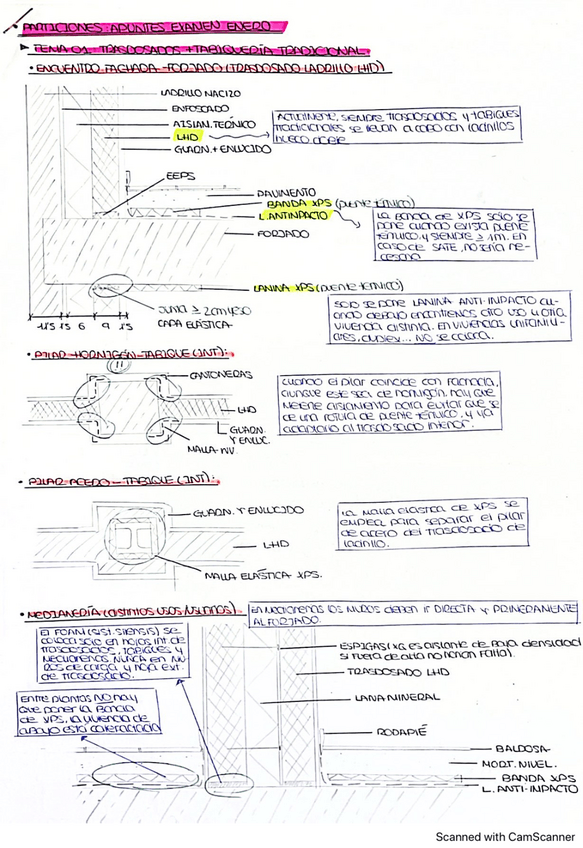 • PARTICIONES. APUNTES EXAMEN ENERO
► TEMA 01. TRASDOSADOS + TABIQUERÍA TRADICIONAL
• ENCUENTRO FACHADA-FORJADO (TRASDOSADO LADRILLO LHD)
LADRILLO MACIZO
ENFOSCADO
AISLAN. TÉRMICO
LHD
GUARN. + ENLUCIDO
ACTUALMENTE, SIEMPRE TRASDOSADOS Y TABIQUES
TRADICIONALES SE LLEVAN A CABO CON LADRILLOS
HUECO DOBLE
EEPS
PAVIMENTO
BANDA XPS (PUENTE TÉRMICO)
L. ANTIIMPACTO
FORJADO
LA BANDA DE XPS SOLO SE
PONE CUANDO EXISTA PUENTE
TÉRMICO, Y SIEMPRE ≥ 1m. EN
CASO DE SATE, NO SERÍA NE-
CESARIO
LÁMINA XPS (PUENTE TÉRMICO)
JUNTA ≥ 2cm YESO
CAPA ELÁSTICA
11'5 1'5 6 9 1'5
SOLO SE PONE LÁMINA ANTI-IMPACTO CU-
ANDO DEBAJO ENCONTREMOS OTRO USO U OTRA
VIVIENDA DISTINTA. EN VIVIENDAS UNIFAMILI-
ARES, DUPLEX... NO SE COLOCA.
• PILAR HORMIGÓN-TABIQUE (INT):
CANTONERAS
LHD
GUARN.
Y ENLUC.
MALLA
CUANDO EL PILAR COINCIDE CON FACHADA,
AUNQUE ESTE SEA DE HORMIGÓN, HAY QUE
METERLE AISLAMIENTO PARA EVITAR QUE SE
DE UNA ROTURA DE PUENTE TÉRMICO, Y YA
ADAPTARLO AL TRASDOSADO INTERIOR.
• PILAR ACERO-TABIQUE (INT):
GUARN. Y ENLUCIDO
LHD
MALLA ELÁSTICA XPS.
LA MALLA ELÁSTICA DE XPS SE
EMPLEA PARA SEPARAR EL PILAR
DE ACERO DEL TRASDOSADO DE
LADRILLO.
• MEDIANERÍA (DISTINTOS USOS/USUARIOS)
EN MEDIANERAS LOS MUROS DEBEN IR DIRECTA Y PRIMERAMENTE
AL FORJADO.
EL FOAM (SIST. SILENSIS) SE
COLOCA SOLO EN HOJAS INT. DE
TRASDOSADOS, TABIQUES Y
MEDIANERAS. NUNCA EN MU-
ROS DE CARGA Y HOJA EXT.
DE TRASDOSADO.
ENTRE PLANTAS NO HAY
QUE PONER LA BANDA
DE XPS, LA VIVIENDA DE
ABAJO ESTÁ CALEFACTADA
ESPIGAS (XG ES AISLANTE DE BAJA DENSIDAD
SI FUERA DE ALTA NO HARÍAN FALTA).
TRASDOSADO LHD
LANA MINERAL
RODAPIÉ
BALDOSA
MORT. NIVEL.
BANDA XPS
L. ANTI-IMPACTO
Scanned with CamScanner